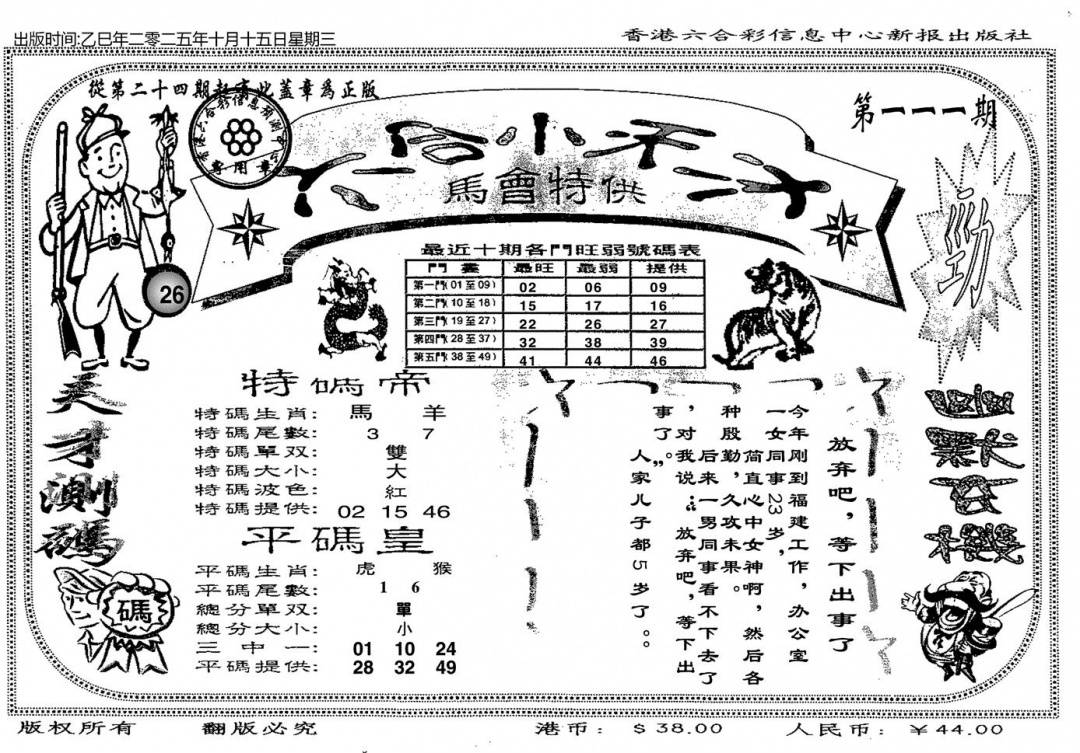 出版时间:乙巳年二零二五年十月十五日星期三
香港六合彩信息中心新报出版社
從第二十四期起有此蓋章爲正版
第一一一期
馬會特供
勁
26
最近十期各門旺弱號碼表
門 畫 最旺 最弱 提供
第一門(01至09) 02 06 09
第二門(10至18) 15 17 16
第三門(19至27) 22 26 27
第四門(28至37) 32 38 39
第五門(38至49) 41 44 46
天才測碼
碼
特碼帝
特碼生肖: 馬 羊
特碼尾數: 3 7
特碼單双: 雙
特碼大小: 大
特碼波色: 紅
特碼提供: 02 15 46
平碼皇
平碼生肖: 虎 猴
平碼尾數: 1 6
總分單双: 單
總分大小: 小
三中一: 01 10 24
平碼提供: 28 32 49
放弃吧，等下出事了
今年刚到福建工作，办公室
一女同事23岁，
简直心中女神啊，然后各
种殷勤，久攻未果。
后来一男同事看不下去了
，对我说：“放弃吧，等下出
事了”。
人家儿子都5岁了。。
版权所有
翻版必究
港币: $38.00
人民币: ￥44.00